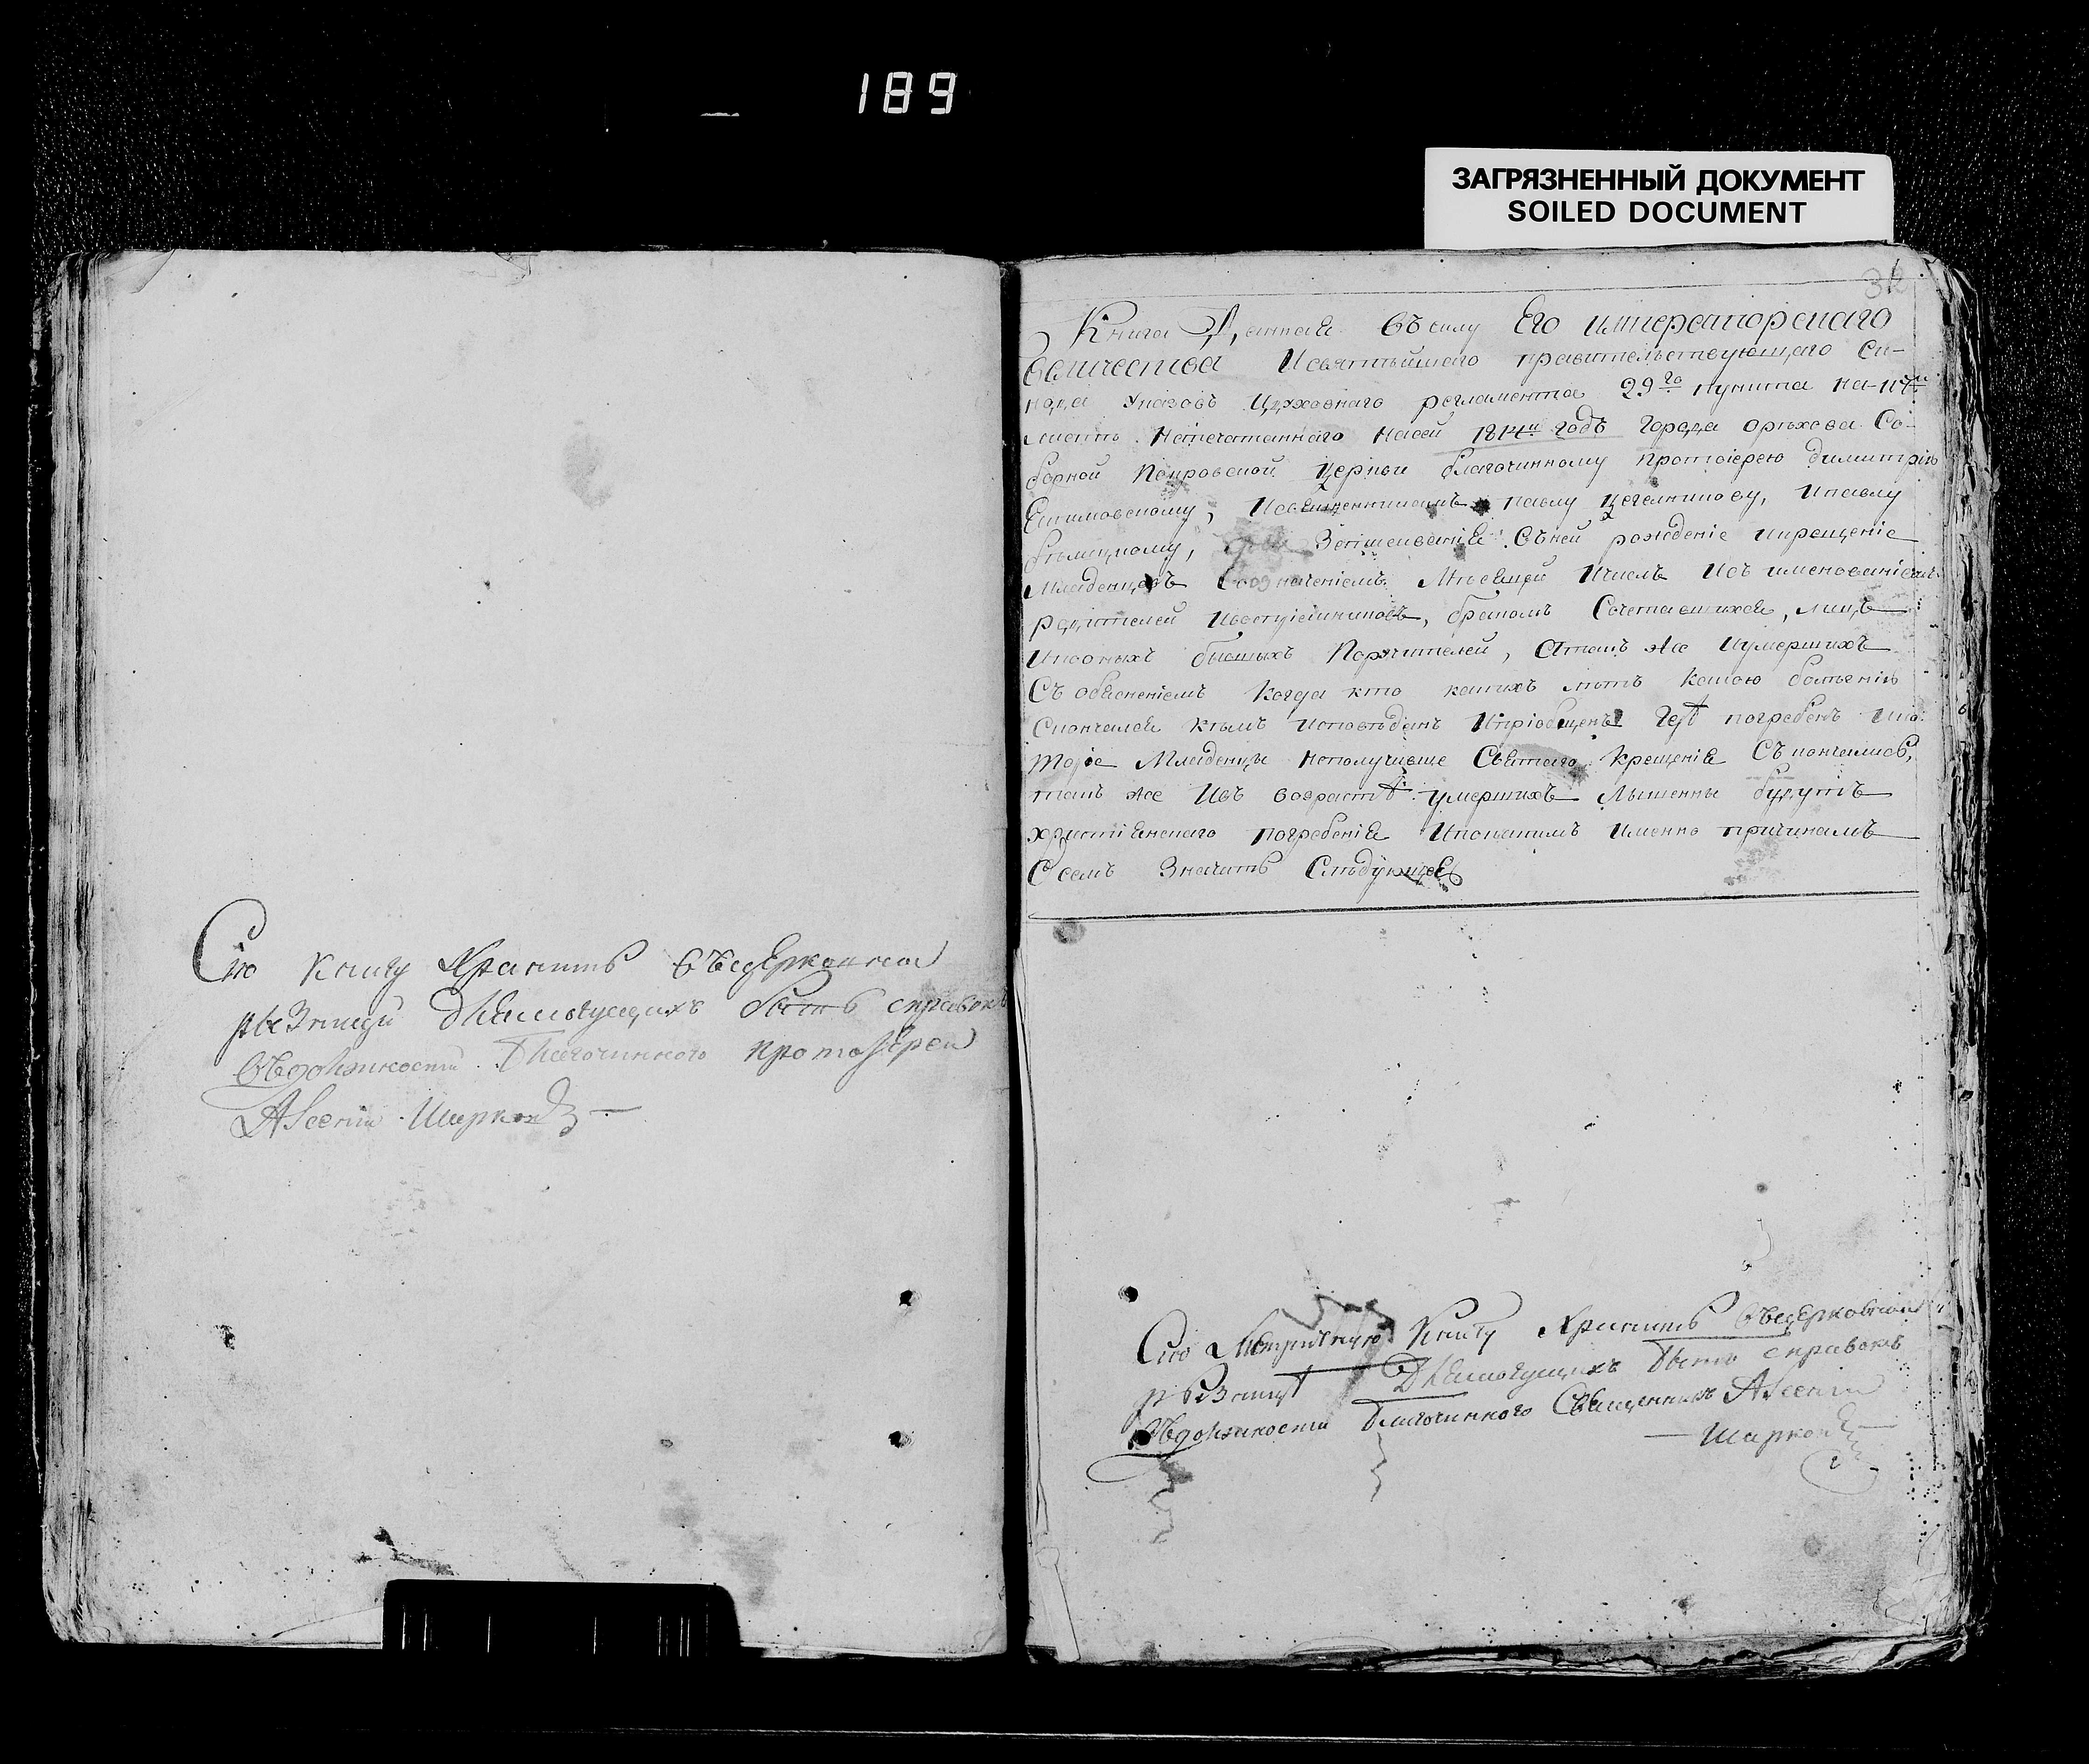 189
ЗАГРЯЗНЕННЫЙ ДОКУМЕНТ
SOILED DOCUMENT
Сию книгу хранить въцерковной
рызницы для могущихъ быть справокъ
въдолжности благочинного протоіерей
Алсеній Шарков
Книга Данная въсилу Его императорскаго
величества Исвятѣйшаго правительствующаго Си-
нода Указовъ Церковнаго регламента 29го пункта на
листъ Напечатаннаго насей 1814й годъ города орѣхова Со-
борной Покровской Церкви благочинному протоіерею димитрію
Исвященникамъ павлу Цегелникову, Ипавлу
Бѣлицкому, Записыванія въней рожденіе икрещеніе
Младенцовъ Созначеніемъ Мѣсяцей Ичислъ Исъ именованіемъ
родителей Ивоспріемниковъ, бракомъ Сочетавшихся, лицъ
Иповныхъ бывшыхъ Поручителей, Атакъ же Иумершихъ
Съ обясненіемъ когда кто какихъ лѣтъ какою болѣзнію
Скончался кѣмъ исповѣданъ Ипріобщенъ Гдѣ погребенъ Ико
торіе Младенцы неполучивше Святаго крещенія Скончались,
такъ же Изъ возрастѣ умершихъ лышенны будутъ
христіянскаго погребенія Ипокакимъ именно причинамъ
Осемъ Значитъ Слѣдующее
Сию Метрическую книгу хранить въцерковной
рызницѣ для могущихъ быть справокъ
въдолжности благочинного Священникъ Алсеній
Шарков